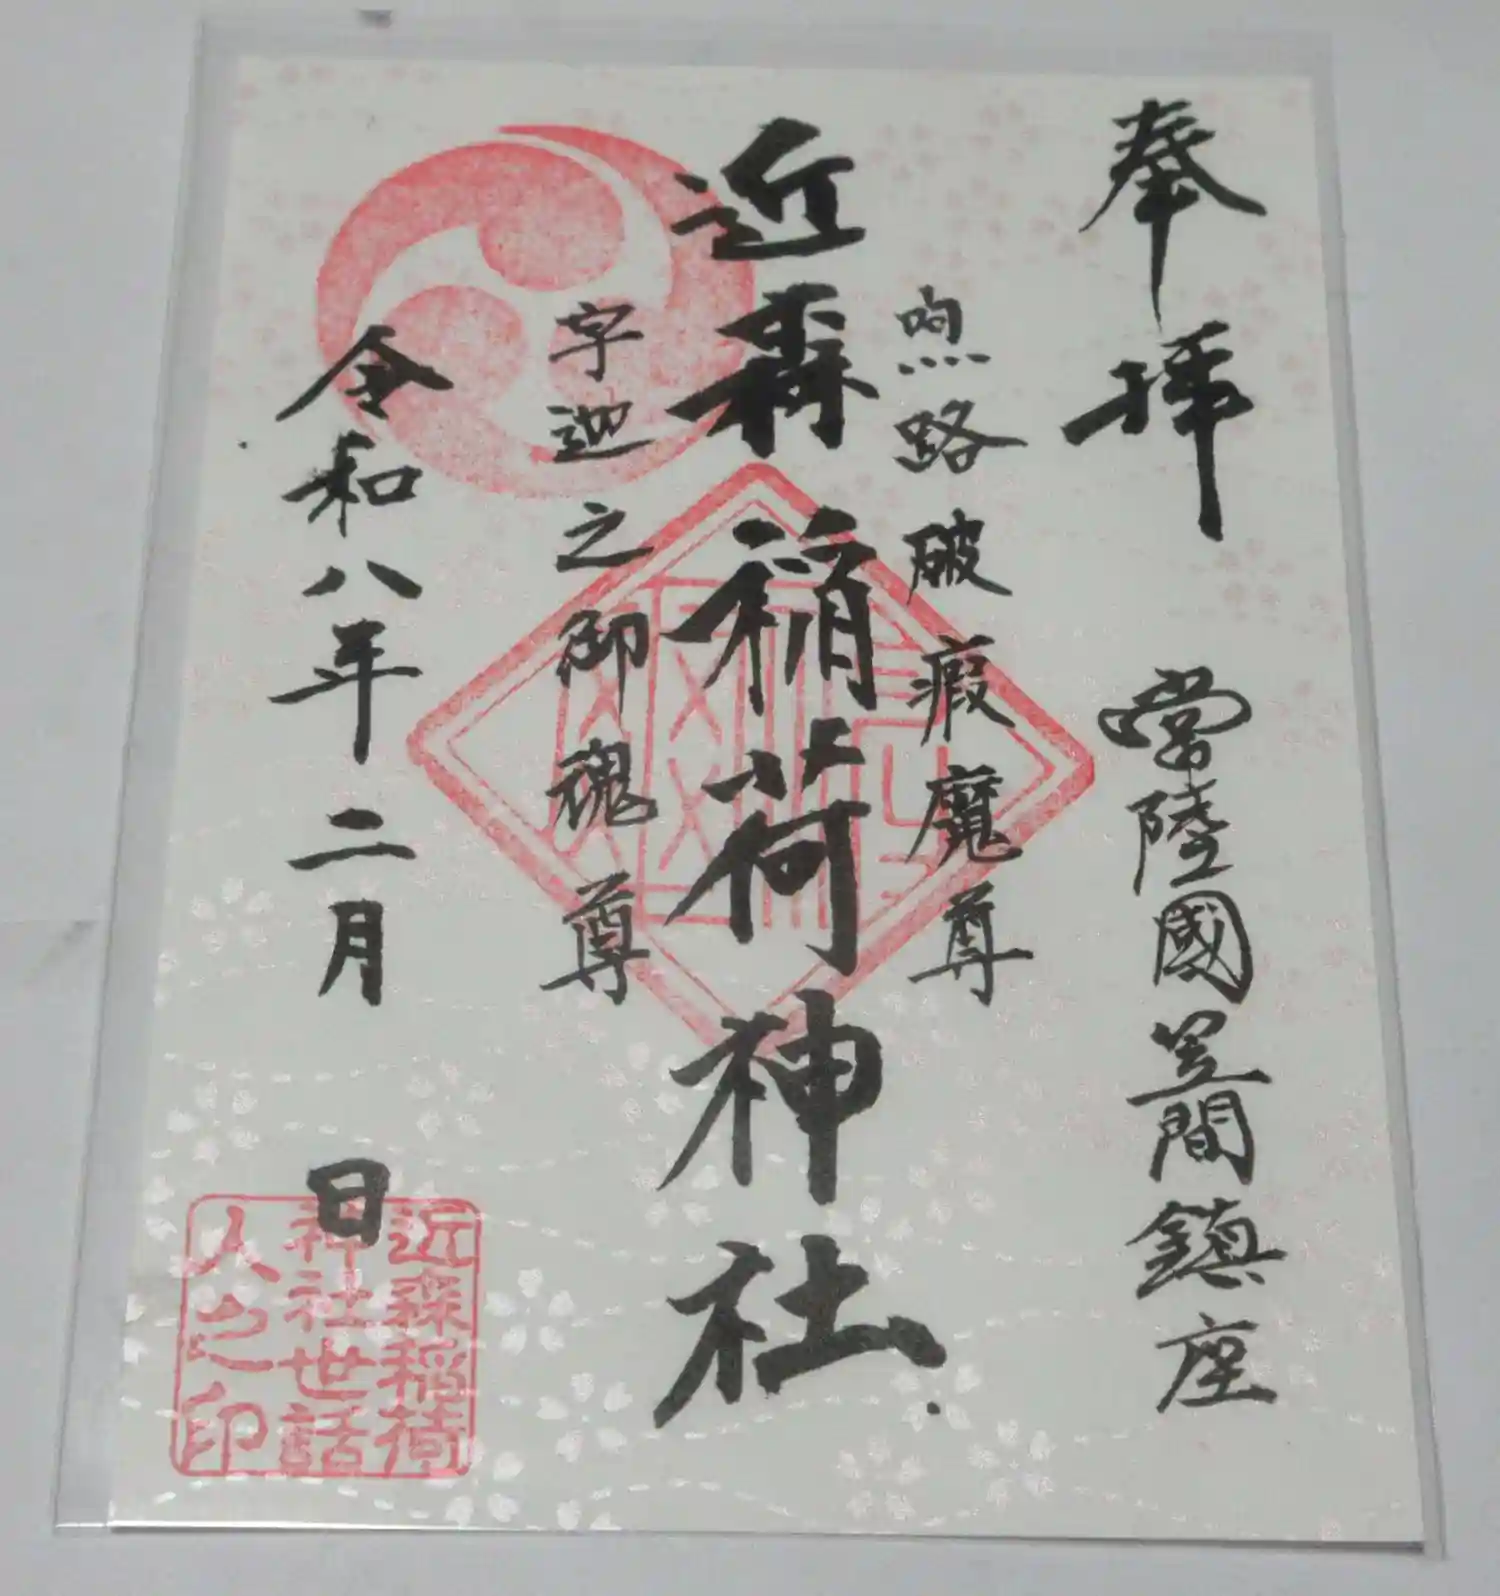 奉拝
常陸國笠間鎮座
喣路破瘕魔尊
近森稲荷神社
字迦之御魂尊
令和八年二月 日
近森稲荷
神社世話
人之印